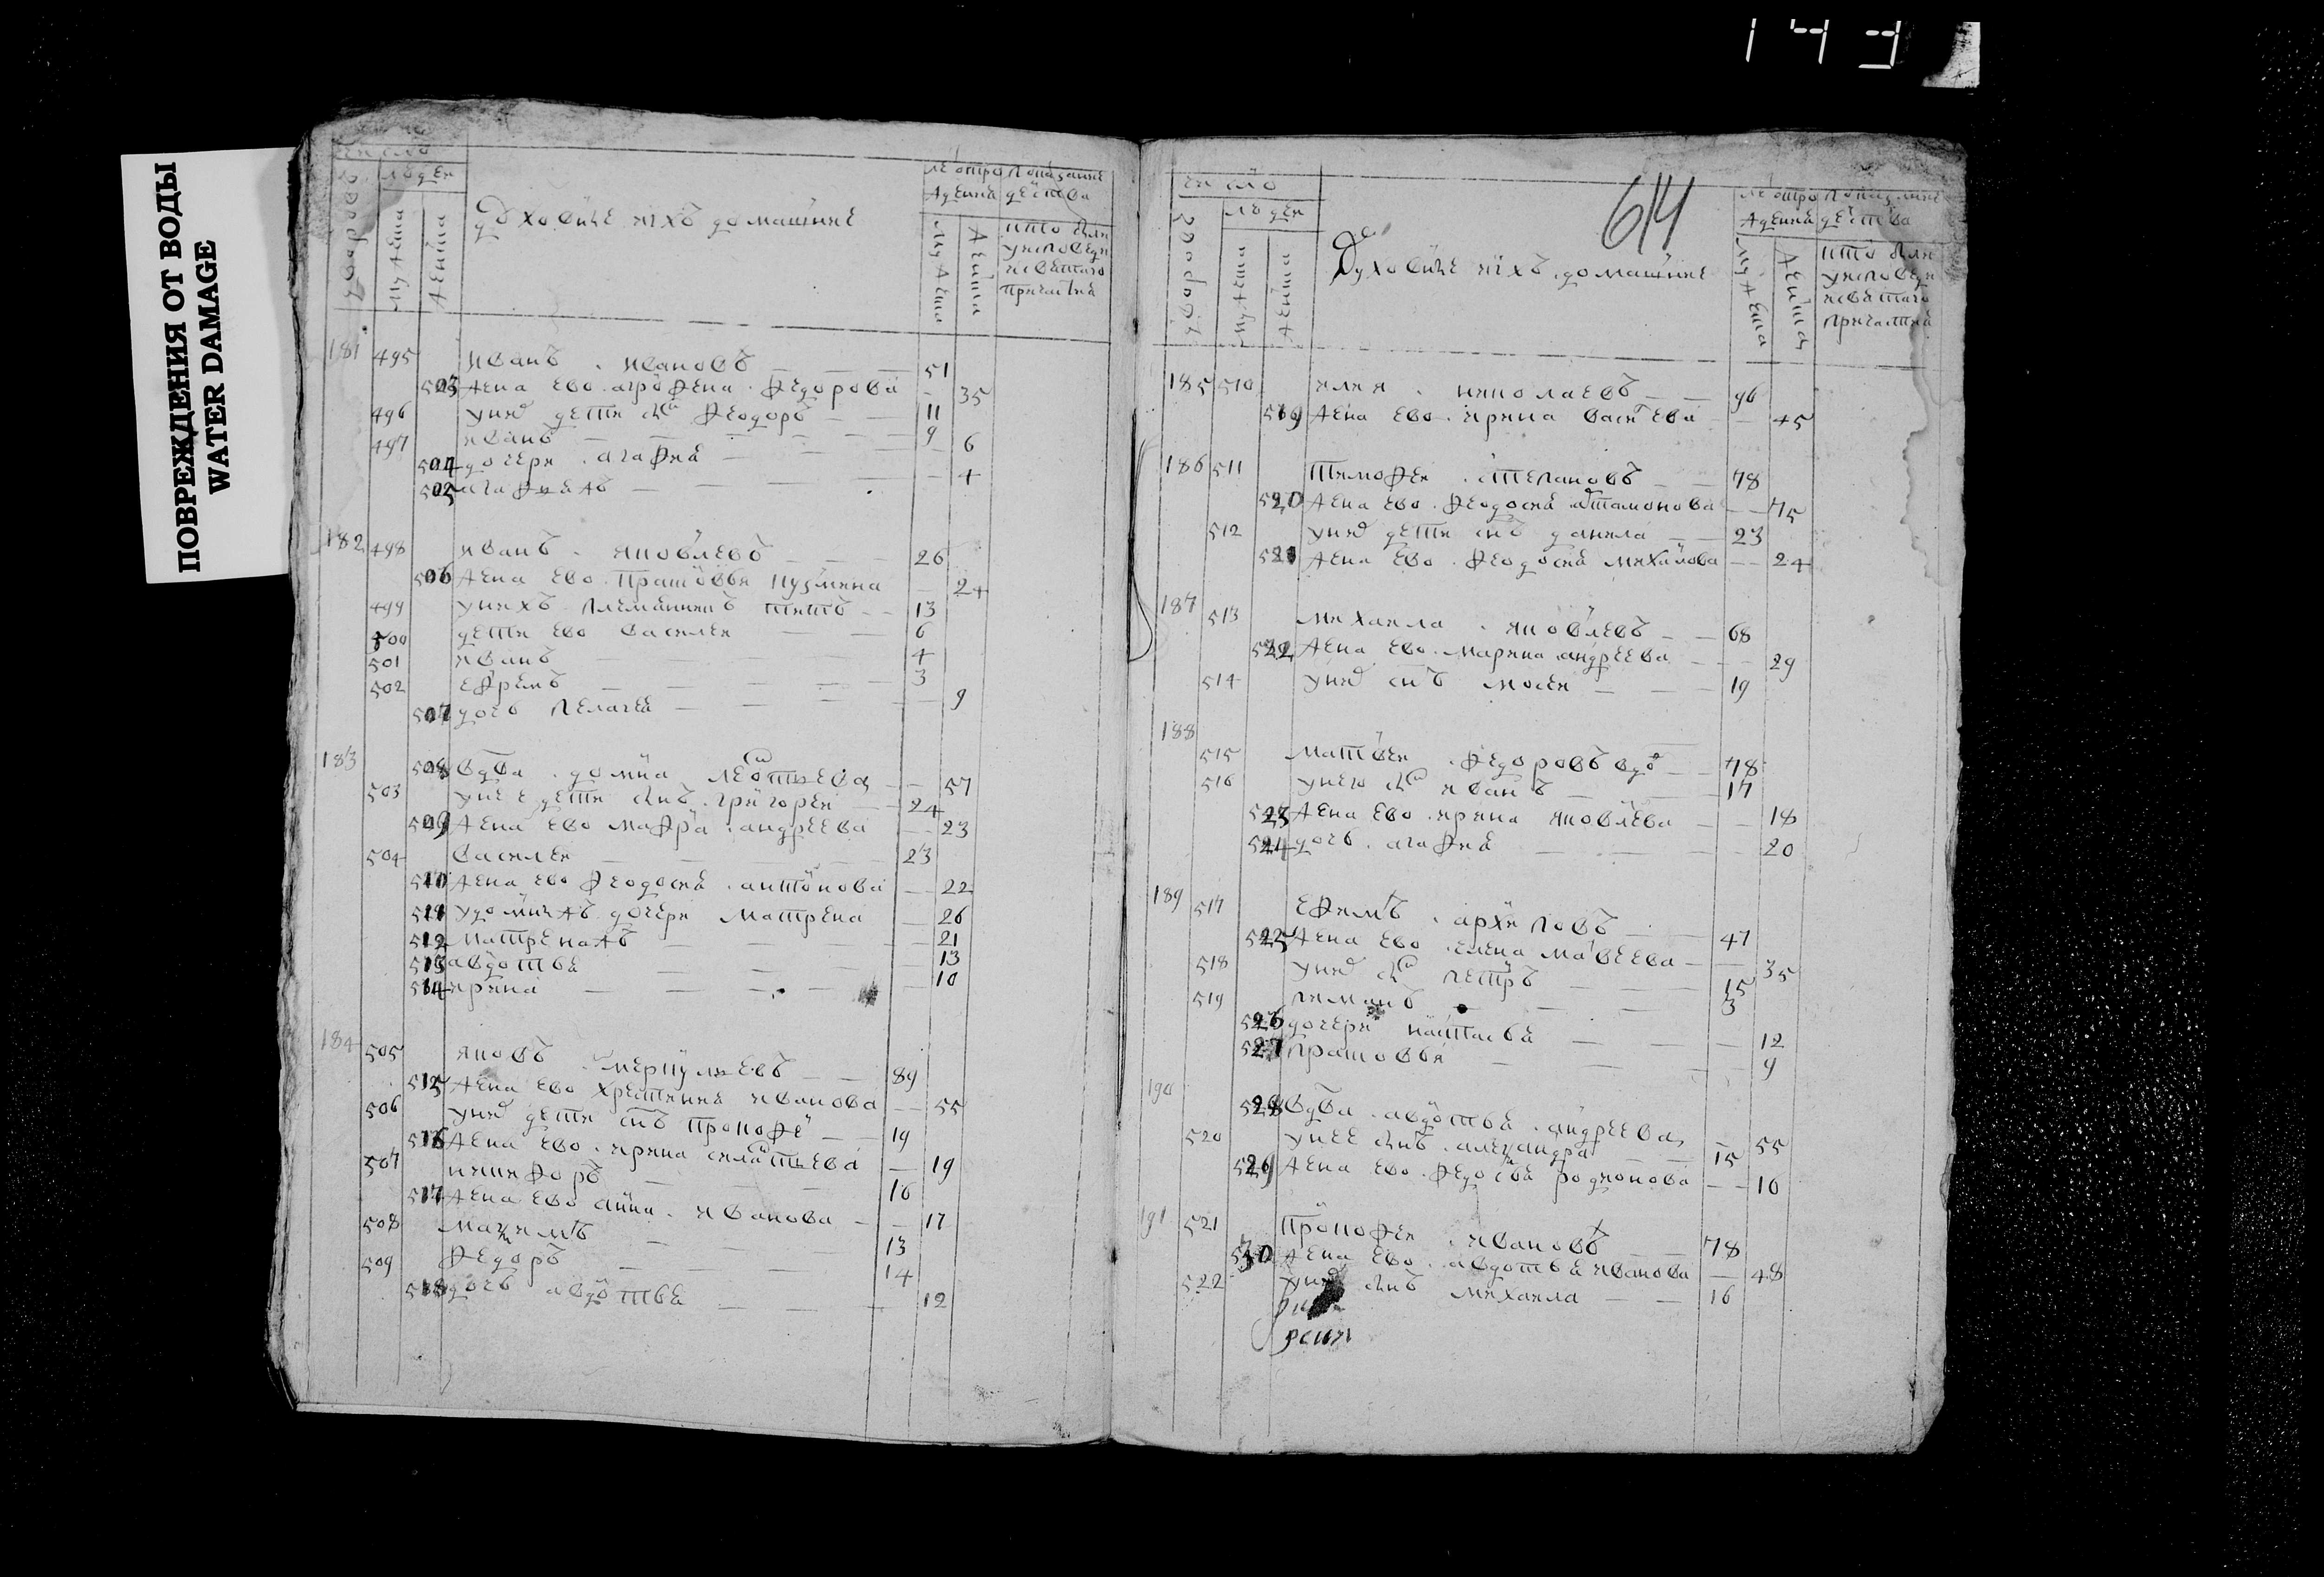 143
ПОВРЕЖДЕНИЯ ОТ ВОДЫ
WATER DAMAGE
число
дворовъ
людей
мужеска
женска
Духовные ихъ домашние
мужеска
женска
181 495 иванъ ивановъ 51
503 жена ево агрофена федорова 35
496 унихъ дети снъ феодоръ 11
497 иванъ 9
504 дочери агафия 6
505 агафияжъ 4
182 498 иванъ яковлевъ 26
506 жена ево прасковья кузмина 24
499 унихъ племянникъ титъ 13
500 дети ево василеи 6
501 иванъ 4
502 ефремъ 3
507 дочь пелагея 9
183 508 вдва домна леонтьева 57
503 унее дети снъ григореи 24
509 жена ево мафра андреева 23
504 василеи 23
510 жена ево феодосия антонова 22
511 удомныжъ дочери матрена 26
512 матренажъ 21
513 авдотья 13
514 ирина 10
184 505 яковъ меркулиевъ 89
515 жена ево христиния иванова 55
506 унихъ дети снъ прокофеи 19
516 жена ево ирина силантьева 19
507 никифоръ 16
517 жена ево анна иванова 17
508 макимъ 13
509 федоръ 14
518 дочь авдотья 12
614
число
дворовъ
людей
мужеска
женска
Духовные ихъ домашние
мужеска
женска
185 510 илия николаевъ 96
519 жена ево ирина василева 45
186 511 тимофеи степановъ 78
520 жена ево феодосия артамонова 75
512 унихъ дети снъ данила 23
521 жена ево феодосия михаилова 24
187 513 михаила яковлевъ 68
522 жена ево марина андреева 29
514 унихъ снъ мосеи 19
188
515 матвеи федоровъ вдв 78
516 унего снъ иванъ 17
523 жена ево ирина яковлева 18
524 дочь агафия 20
189 517 ефимъ архиповъ 47
525 жена ево елена мавеева 35
518 унихъ снъ петръ 15
519 пиманъ 3
526 дочери настасья 12
527 прасковья 9
190 528 вдва авдотья андреева 55
520 унее снъ александра 15
529 жена ево федосья родионова 16
191 521 прокофеи ивановъ 78
530 жена ево авдотья иванова 48
522 унихъ снъ михаила 16